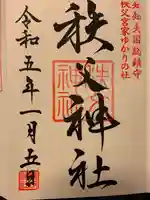 知知夫国総鎮守
秩父宮家ゆかりの社
秩父神社
令和五年一月五日